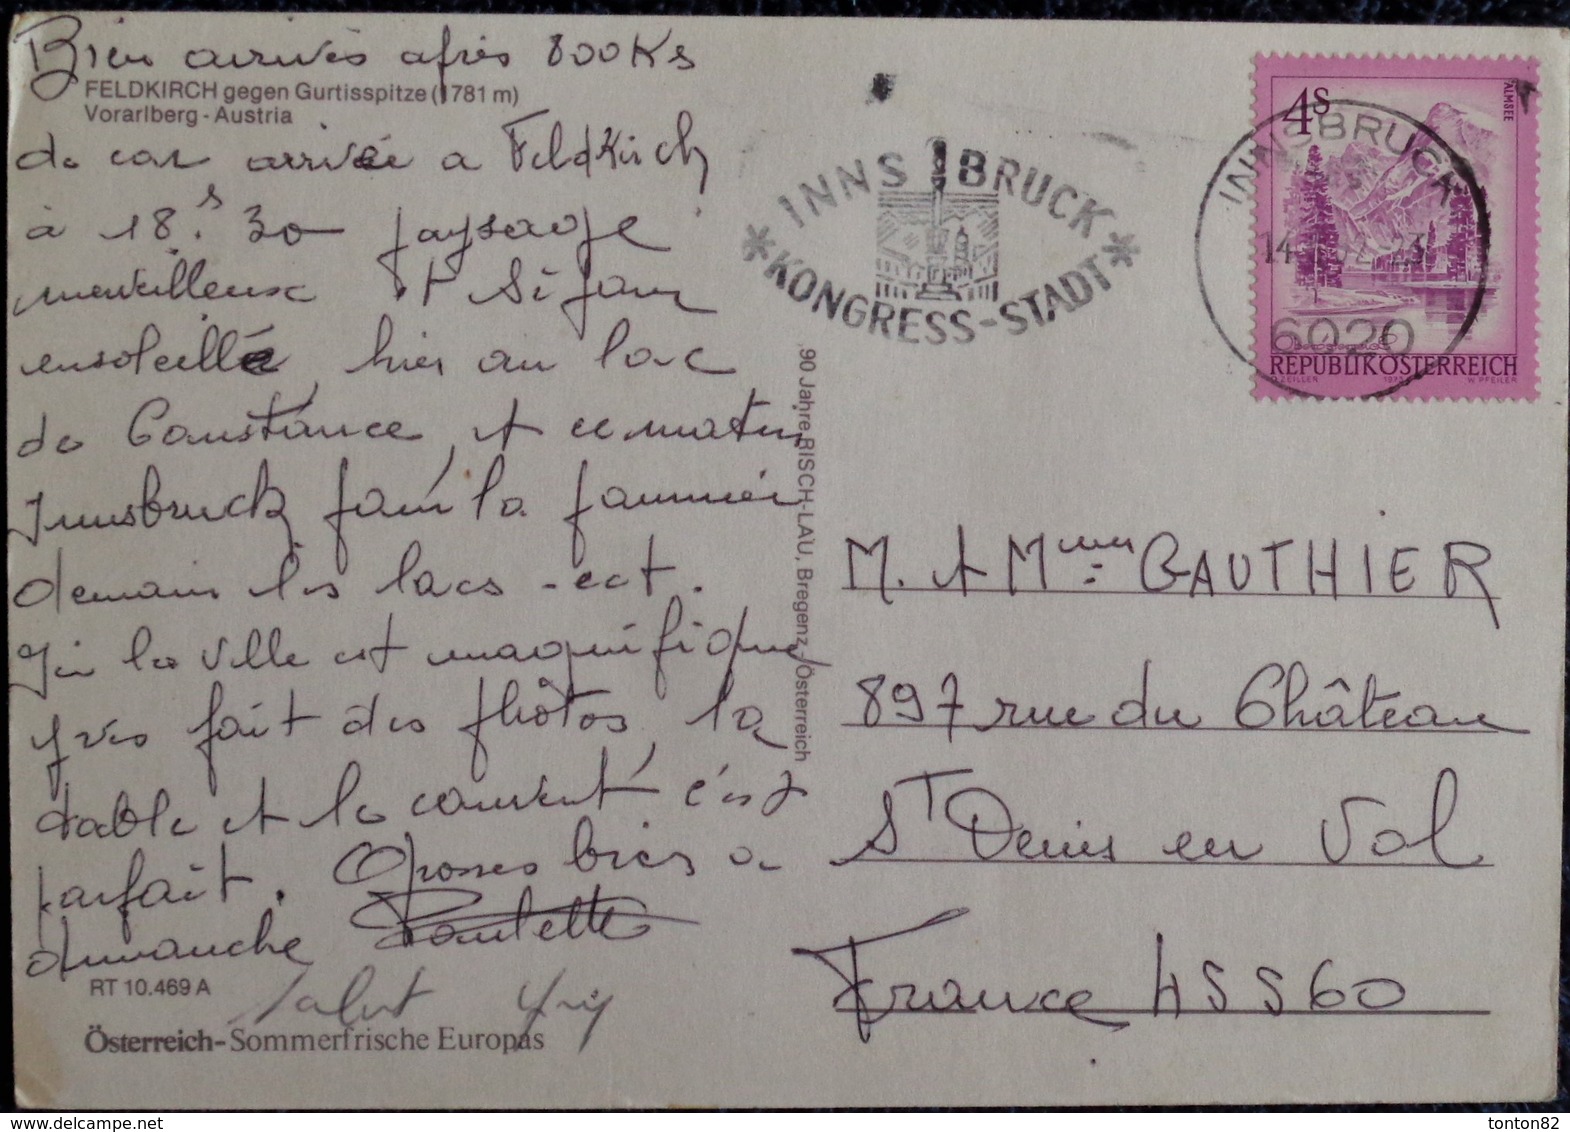 Bien arrivés après 800 Ks
FELDKIRCH gegen Gurtisspitze (1781 m)
Vorarlberg - Austria
de car arrivée a Feldkirch
à 18.s 30 paysage
merveilleux et séjour
ensoleillé, hier au lac
de Constance, et ce matin
Innsbruck
demain les lacs - ect.
la ville est magnifique
Yves fait des phôtos, la
table et le couvent c'est
parfait. Grosses bises a
dimanche Paulette
RT 10.469 A
Salut
Österreich-Sommerfrische Europas
90 Jahre RISCH-LAU, Bregenz, Österreich
INNSBRUCK
*KONGRESS-STADT*
INNSBRUCK
6020
4S
ALMSEE
REPUBLIK ÖSTERREICH
ZEILLER 1973 W. PFEILER
M. et Mme GAUTHIER
897 rue du Château
St Denis en Val
France 45560
tonton82